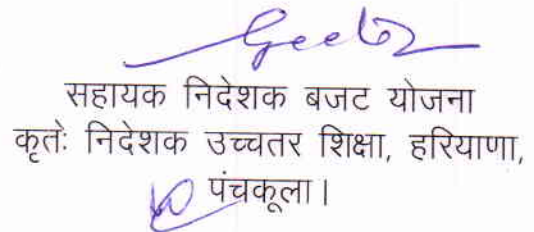 Geeta
सहायक निदेशक बजट योजना
कृतेः निदेशक उच्चतर शिक्षा, हरियाणा,
पंचकूला।